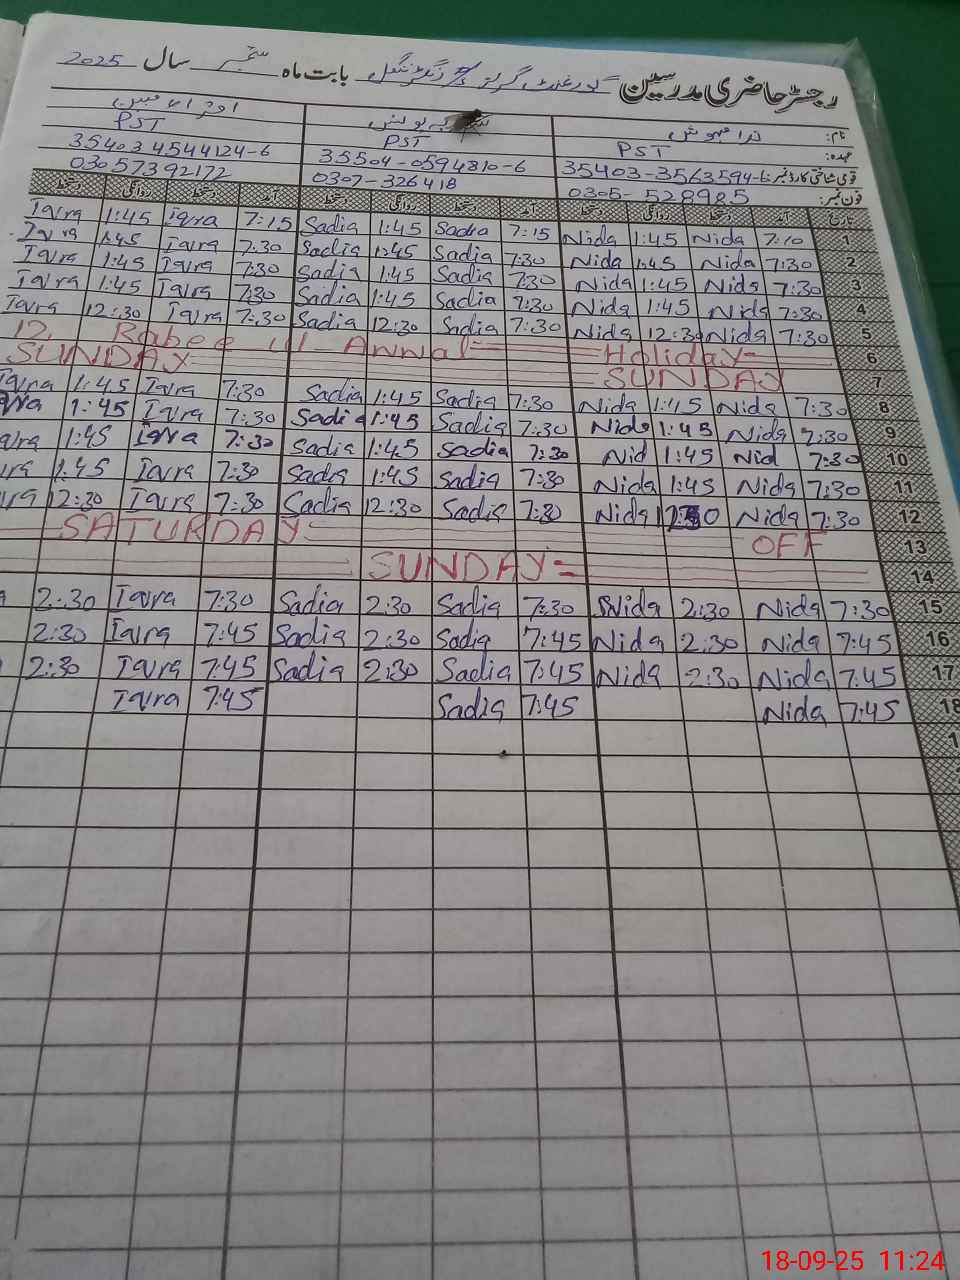 رجسٹر حاضری مدرسین گورنمنٹ گرلز بابت ماہ ستمبر سال 2025
نام:
عہدہ: PST PST PST
قومی شناختی کارڈ نمبر: 35403-3563594-6 35504-0594810-6 35403 4544124-6
فون نمبر: 0305-528985 0307-326418 03057392172
تاریخ آمد دستخط روانگی دستخط آمد دستخط روانگی دستخط آمد دستخط روانگی دستخط
Iqra 1:45 Iqra 7:15 Sadia 1:45 Sadia 7:15 Nida 1:45 Nida 7:10 1
Iqra 1:45 Iqra 7:30 Sadia 1:45 Sadia 7:30 Nida 1:45 Nida 7:30 2
Iqra 1:45 Iqra 7:30 Sadia 1:45 Sadia 7:30 Nida 1:45 Nida 7:30 3
Iqra 1:45 Iqra 7:30 Sadia 1:45 Sadia 7:30 Nida 1:45 Nida 7:30 4
Iqra 12:30 Iqra 7:30 Sadia 12:30 Sadia 7:30 Nida 12:30 Nida 7:30 5
12, Rabee ul Awwal Holiday 6
SUNDAY SUNDAY 7
Iqra 1:45 Iqra 7:30 Sadia 1:45 Sadia 7:30 Nida 1:45 Nida 7:30 8
qra 1:45 Iqra 7:30 Sadia 1:45 Sadia 7:30 Nida 1:45 Nida 7:30 9
qra 1:45 Iqra 7:30 Sadia 1:45 Sadia 7:30 Nid 1:45 Nid 7:30 10
ra 1:45 Iqra 7:30 Sadia 1:45 Sadia 7:30 Nida 1:45 Nida 7:30 11
ra 12:30 Iqra 7:30 Sadia 12:30 Sadia 7:30 Nida 12:30 Nida 7:30 12
SATURDAY OFF 13
SUNDAY 14
a 2:30 Iqra 7:30 Sadia 2:30 Sadia 7:30 Nida 2:30 Nida 7:30 15
2:30 Iqra 7:45 Sadia 2:30 Sadia 7:45 Nida 2:30 Nida 7:45 16
2:30 Iqra 7:45 Sadia 2:30 Sadia 7:45 Nida 2:30 Nida 7:45 17
Iqra 7:45 Sadia 7:45 Nida 7:45 18
18-09-25 11:24